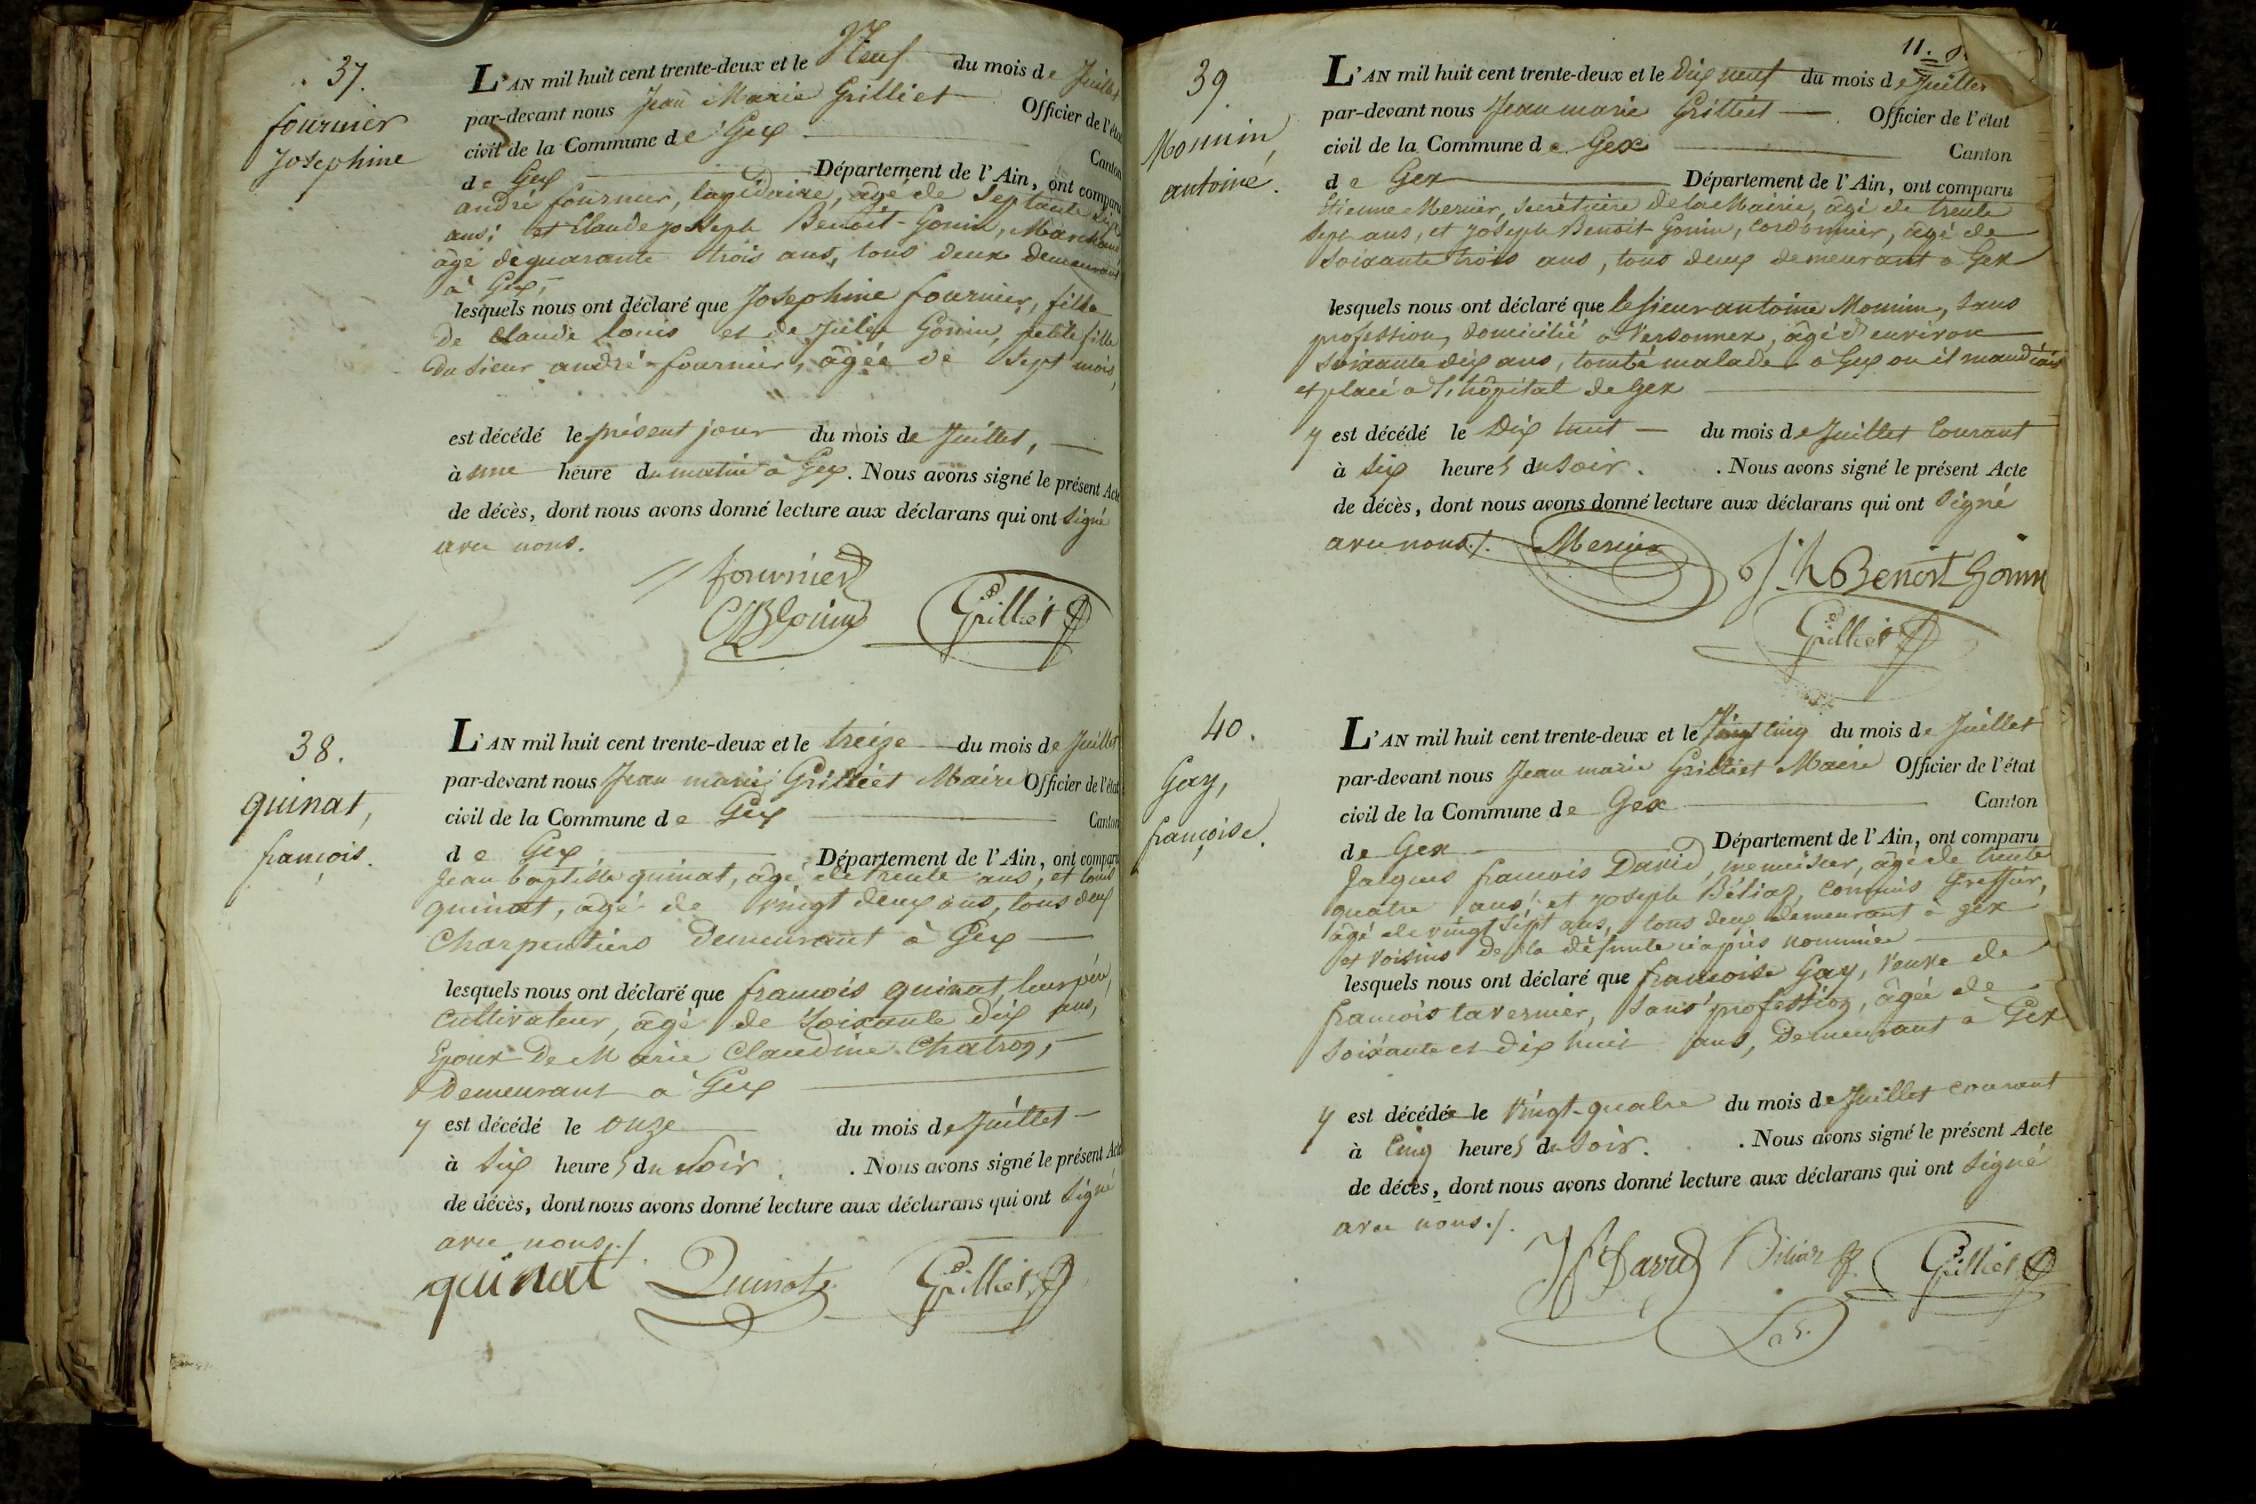 37.
fournier
Josephine
L'AN mil huit cent trente-deux et le Neuf du mois de Juillet
par-devant nous Jean Marie Grilliet Officier de l'état
civil de la Commune de Gex Canton
de Gex Département de l'Ain, ont comparu
andré fournier, lapidaire, âgé de Septante
ans; et Claude joseph Benoit-Gonin, Marchand
âgé de quarante trois ans, tous deux demeurant
à Gex,
lesquels nous ont déclaré que Josephine fournier, fille
de Claude Louis et de Julie Gonin, petite fille
du Sieur andré fournier, âgée de Sept mois,
est décédé le présent jour du mois de Juillet,
à une heure du matin à Gex. Nous avons signé le présent Acte
de décès, dont nous avons donné lecture aux déclarans qui ont Signé
avec nous.
fournier
CJBGonin Grilliet
38.
quinat,
françois.
L'AN mil huit cent trente-deux et le treize du mois de Juillet
par-devant nous Jean marie Grilliet Maire Officier de l'état
civil de la Commune de Gex Canton
de Gex Département de l'Ain, ont comparu
Jean baptiste quinat, âgé de trente ans, et Louis
quinat, âgé de vingt deux ans, tous deux
Charpentiers demeurant à Gex
lesquels nous ont déclaré que francois quinat, leur père,
Cultivateur, âgé de Soixante dix ans,
Epoux De Marie Claudine Chatron,
Demeurant à Gex
y est décédé le onze du mois de Juillet
à Six heures du Soir. . Nous avons signé le présent Acte
de décès, dont nous avons donné lecture aux déclarans qui ont Signé
avec nous./.
quinat Quinat Grilliet
11.
39.
Monnin,
antoine.
L'AN mil huit cent trente-deux et le Dix neuf du mois de Juillet
par-devant nous Jean marie Grilliet Officier de l'état
civil de la Commune de Gex Canton
de Gex Département de l'Ain, ont comparu
Etienne Mercier, Secrétaire de la Mairie, âgé de trente
Sept ans, et Joseph Benoit-Gonin, Cordonnier, âgé de
Soixante trois ans, tous deux demeurant à Gex
lesquels nous ont déclaré que le Sieur antoine Monnin, Sans
profession, domicilié à Versonnex, âgé d'environ
Soixante dix ans, tombé malade à Gex ou il mandiait
et placé à l'hôpital de Gex
y est décédé le Dix huit du mois de Juillet Courant
à Six heures du Soir. . Nous avons signé le présent Acte
de décès, dont nous avons donné lecture aux déclarans qui ont Signé
avec nous./. Mercier
Jh Benoit Gonin
Grilliet
40.
Gay,
françoise.
L'AN mil huit cent trente-deux et le Vingt cinq du mois de Juillet
par-devant nous Jean marie Grilliet Maire Officier de l'état
civil de la Commune de Gex Canton
de Gex Département de l'Ain, ont comparu
Jacques francois David, menuisier, âgé de trente
quatre ans; et joseph Béliaz, Commis Greffier,
âgé de vingt Sept ans, tous deux demeurant à gex
et Voisins de la défunte ci après nommée
lesquels nous ont déclaré que francoise Gay, Veuve de
francois tavernier, Sans profession, âgée de
Soixante et dix huit ans, Demeurant à Gex
y est décédée le Vingt-quatre du mois de Juillet courant
à Cinq heures du Soir. . Nous avons signé le présent Acte
de décès, dont nous avons donné lecture aux déclarans qui ont Signé
avec nous./.
JfDavid Béliaz Grilliet